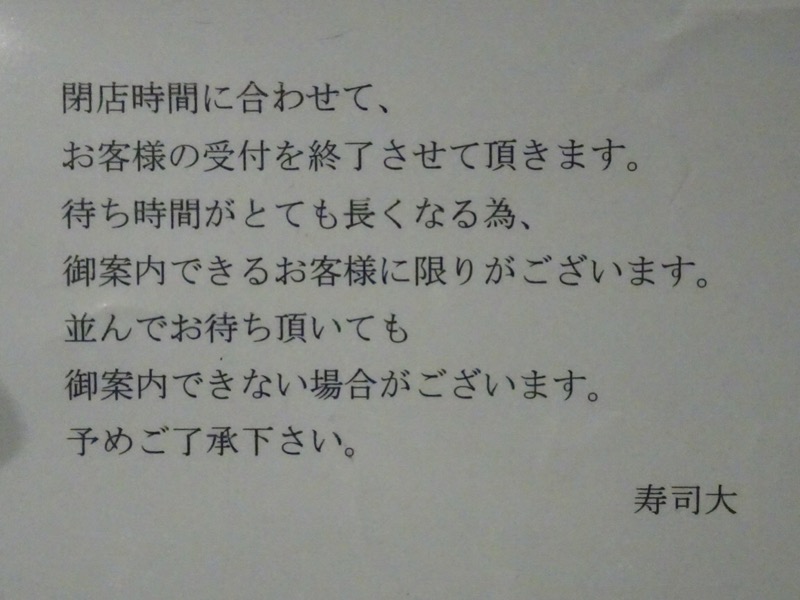 閉店時間に合わせて、
お客様の受付を終了させて頂きます。
待ち時間がとても長くなる為、
御案内できるお客様に限りがございます。
並んでお待ち頂いても
御案内できない場合がございます。
予めご了承下さい。
寿司大